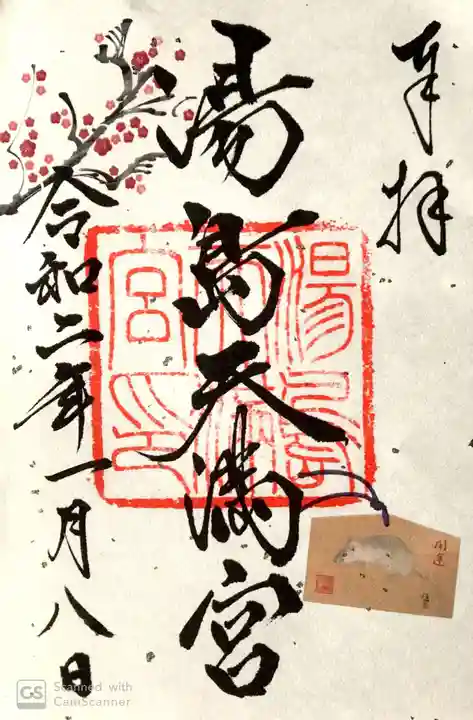 奉拝
湯島天満宮
湯島天満宮印
令和二年一月八日
開運
CS Scanned with
CamScanner